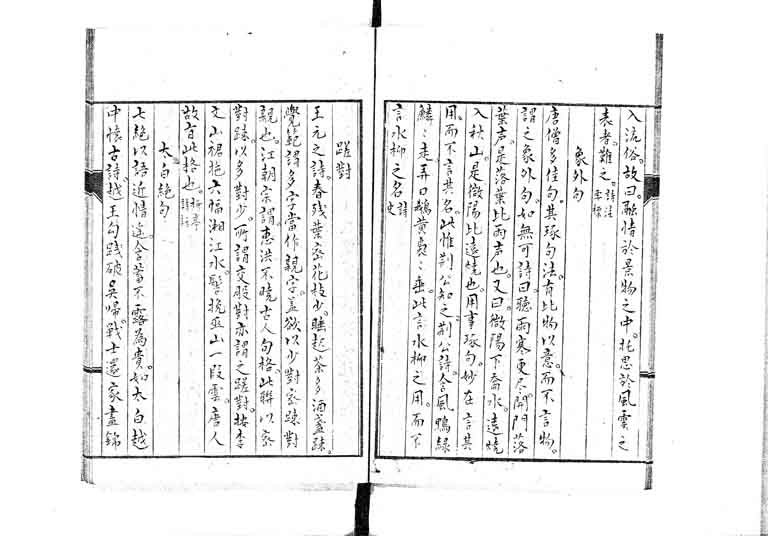 入流俗。故曰。融情於景物之中。托思於風雲之
表者。難之。詩法李標
象外句
唐僧多佳句。其琢句法有比物以意。而不言物。
謂之象外句。如無可詩曰。聽雨寒更尽。開門落
葉声。是落葉比雨声也。又曰。微陽下喬水。遠燒
入秋山。是微陽比遠燒也。用事琢句。妙在言其
用。而不言其名。此惟荆公知之。荆公詩。含風鴨緑
鱗〻走。弄日鵝黄裊〻垂。此言水柳之用。而不
言水柳之名。詩史
蹉對
王元之詩。春残葉密花枝少。睡起茶多酒盞疎。
覺範謂多字當作親字。盖欲以少對密。疎對
親也。江朝宗謂。恵洪不曉古人句格。此聯以密
對疎。以多對少。所謂交股對。亦謂之蹉對。按李
文山裙拖六幅湘江水。髻挽巫山一段雲。唐人
故有此格也。梅亭詩話
太白絶句
七絶以語近情遙。含蓄不露為貴。如太白越
中懐古詩。越王句践破吳帰。戰士還家盡錦